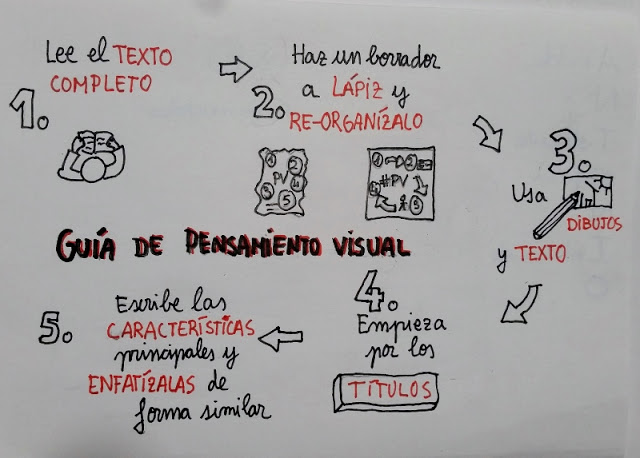 1.
Lee el TEXTO
COMPLETO
2.
Haz un borrador
a LÁPIZ y
RE-ORGANÍZALO
PV
1
2
3
4
5
#PV
1
2
3
4
3.
Usa
DIBUJOS
y TEXTO
GUÍA DE PENSAMIENTO VISUAL
4.
Empieza
por los
TÍTULOS
5.
Escribe las
CARACTERÍSTICAS
principales y
ENFATÍZALAS de
forma similar